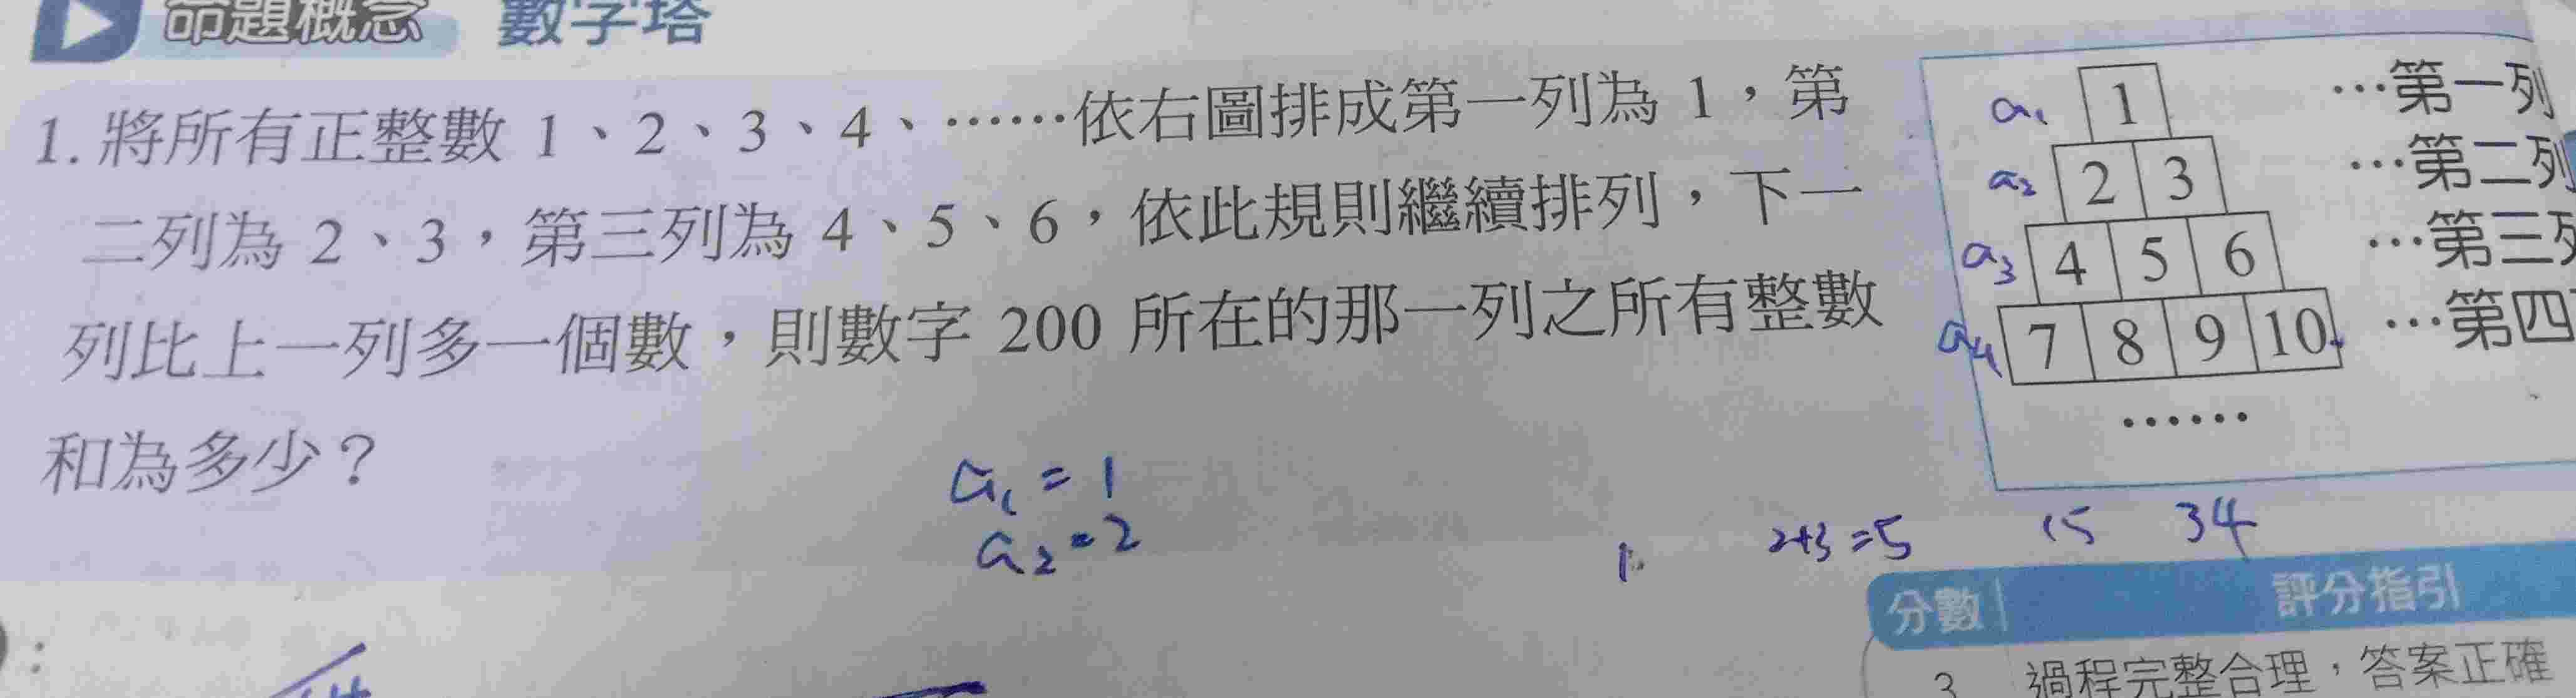 命題概念 數字塔
1. 將所有正整數 1、2、3、4、……依右圖排成第一列為 1，第
二列為 2、3，第三列為 4、5、6，依此規則繼續排列，下一
列比上一列多一個數，則數字 200 所在的那一列之所有整數
和為多少？
a₁ 1 …第一列
a₂ 2 3 …第二列
a₃ 4 5 6 …第三列
a₄ 7 8 9 10 …第四
……
a₁ = 1
a₂ = 2
1 2+3=5 15 34
分數 評分指引
3 過程完整合理，答案正確